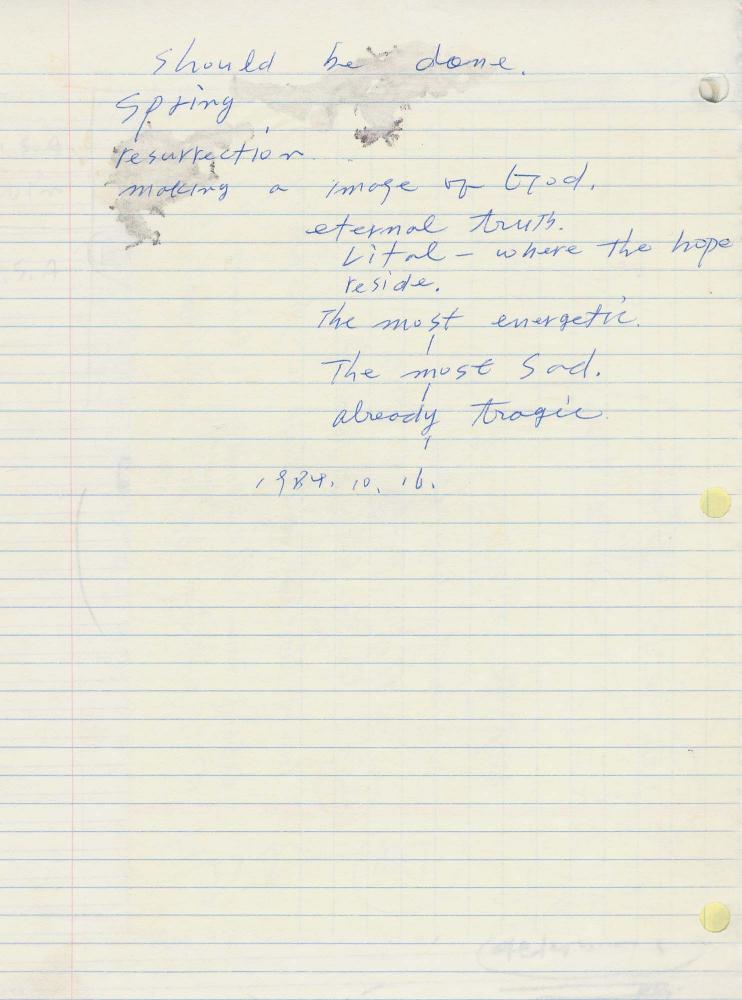 should be done.
Spring
resurrection
making a image of God.
eternal truth.
Vital - where the hope
reside.
The most energetic.
The most Sad.
already tragic
1984. 10. 16.